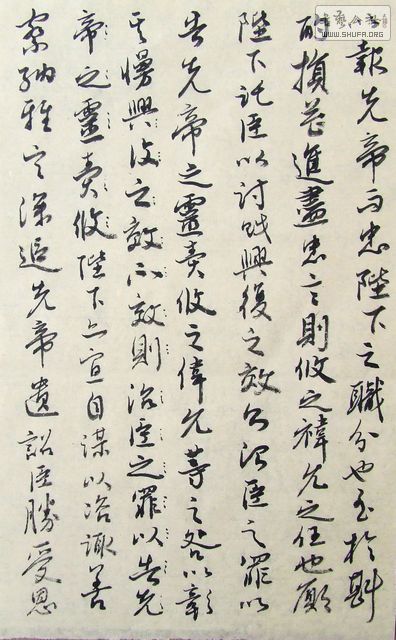 WWW.SHUFA.ORG
報先帝而忠陛下之職分也至於斟
酌損益進盡忠言則攸之禕允之任也願
陛下託臣以討賊興復之效不治臣之罪以
告先帝之靈責攸之偉允等之咎以彰
其慢興復之效不效則治臣之罪以告先
帝之靈責攸陛下亦宜自謀以咨諏善
察納雅言深追先帝遺詔臣勝受恩